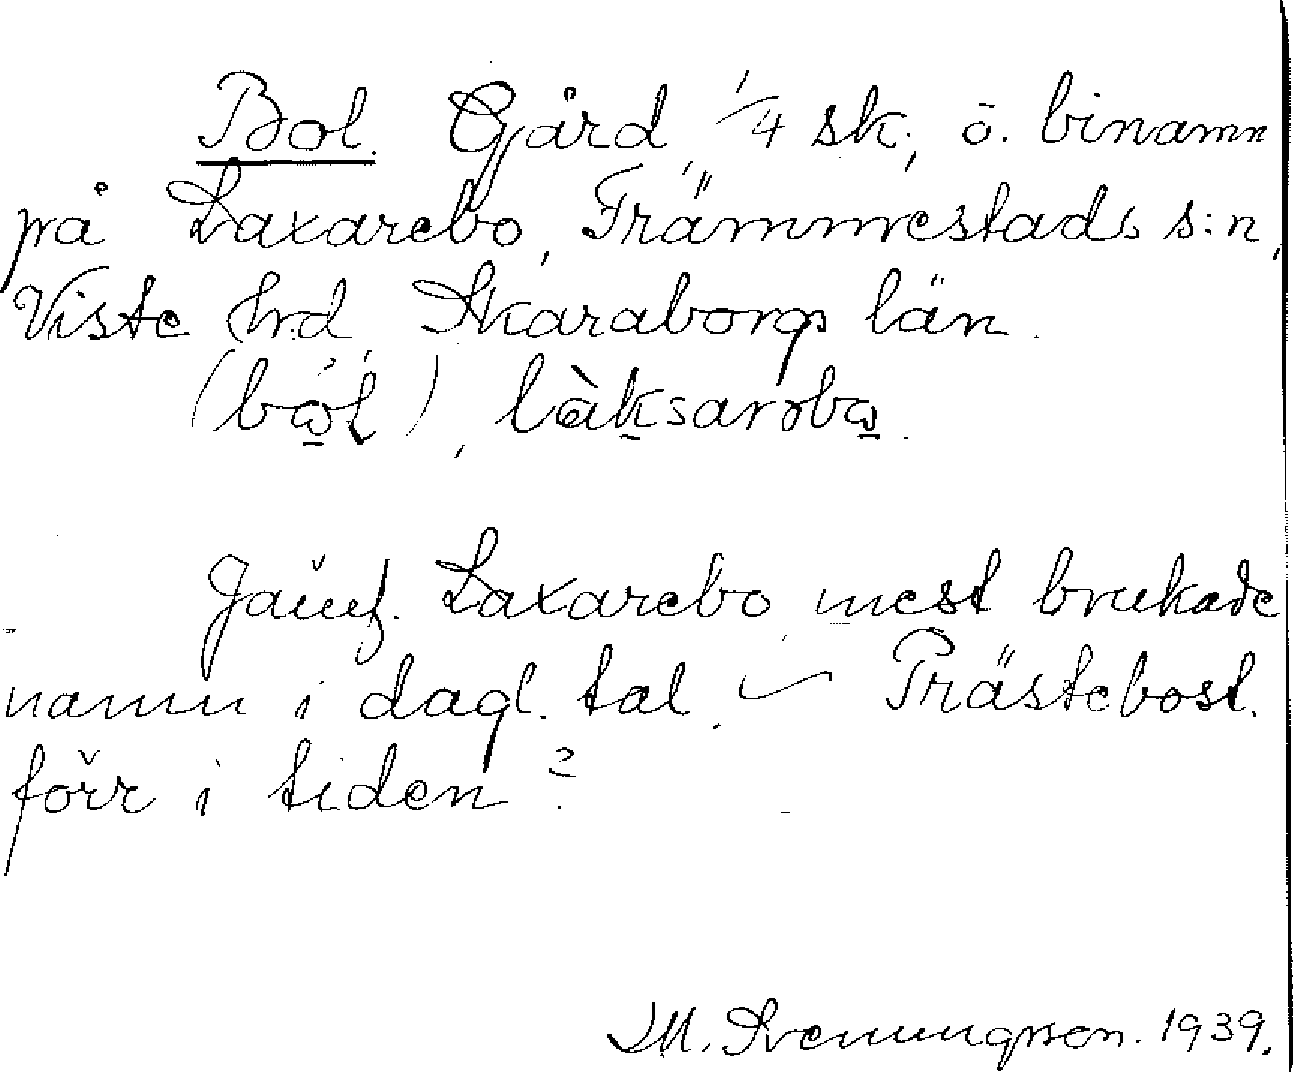 Bol. Gård, 1/4 sk., ö. binamn
på Laxarebo, Främmestads s:n,
Viste hrd, Skaraborgs län.
(bol), làksarəbo.
Jämf. Laxarebo, mest brukade
namn i dagl. tal. – Prästebost.
förr i tiden?
M. Svenungsson. 1939.